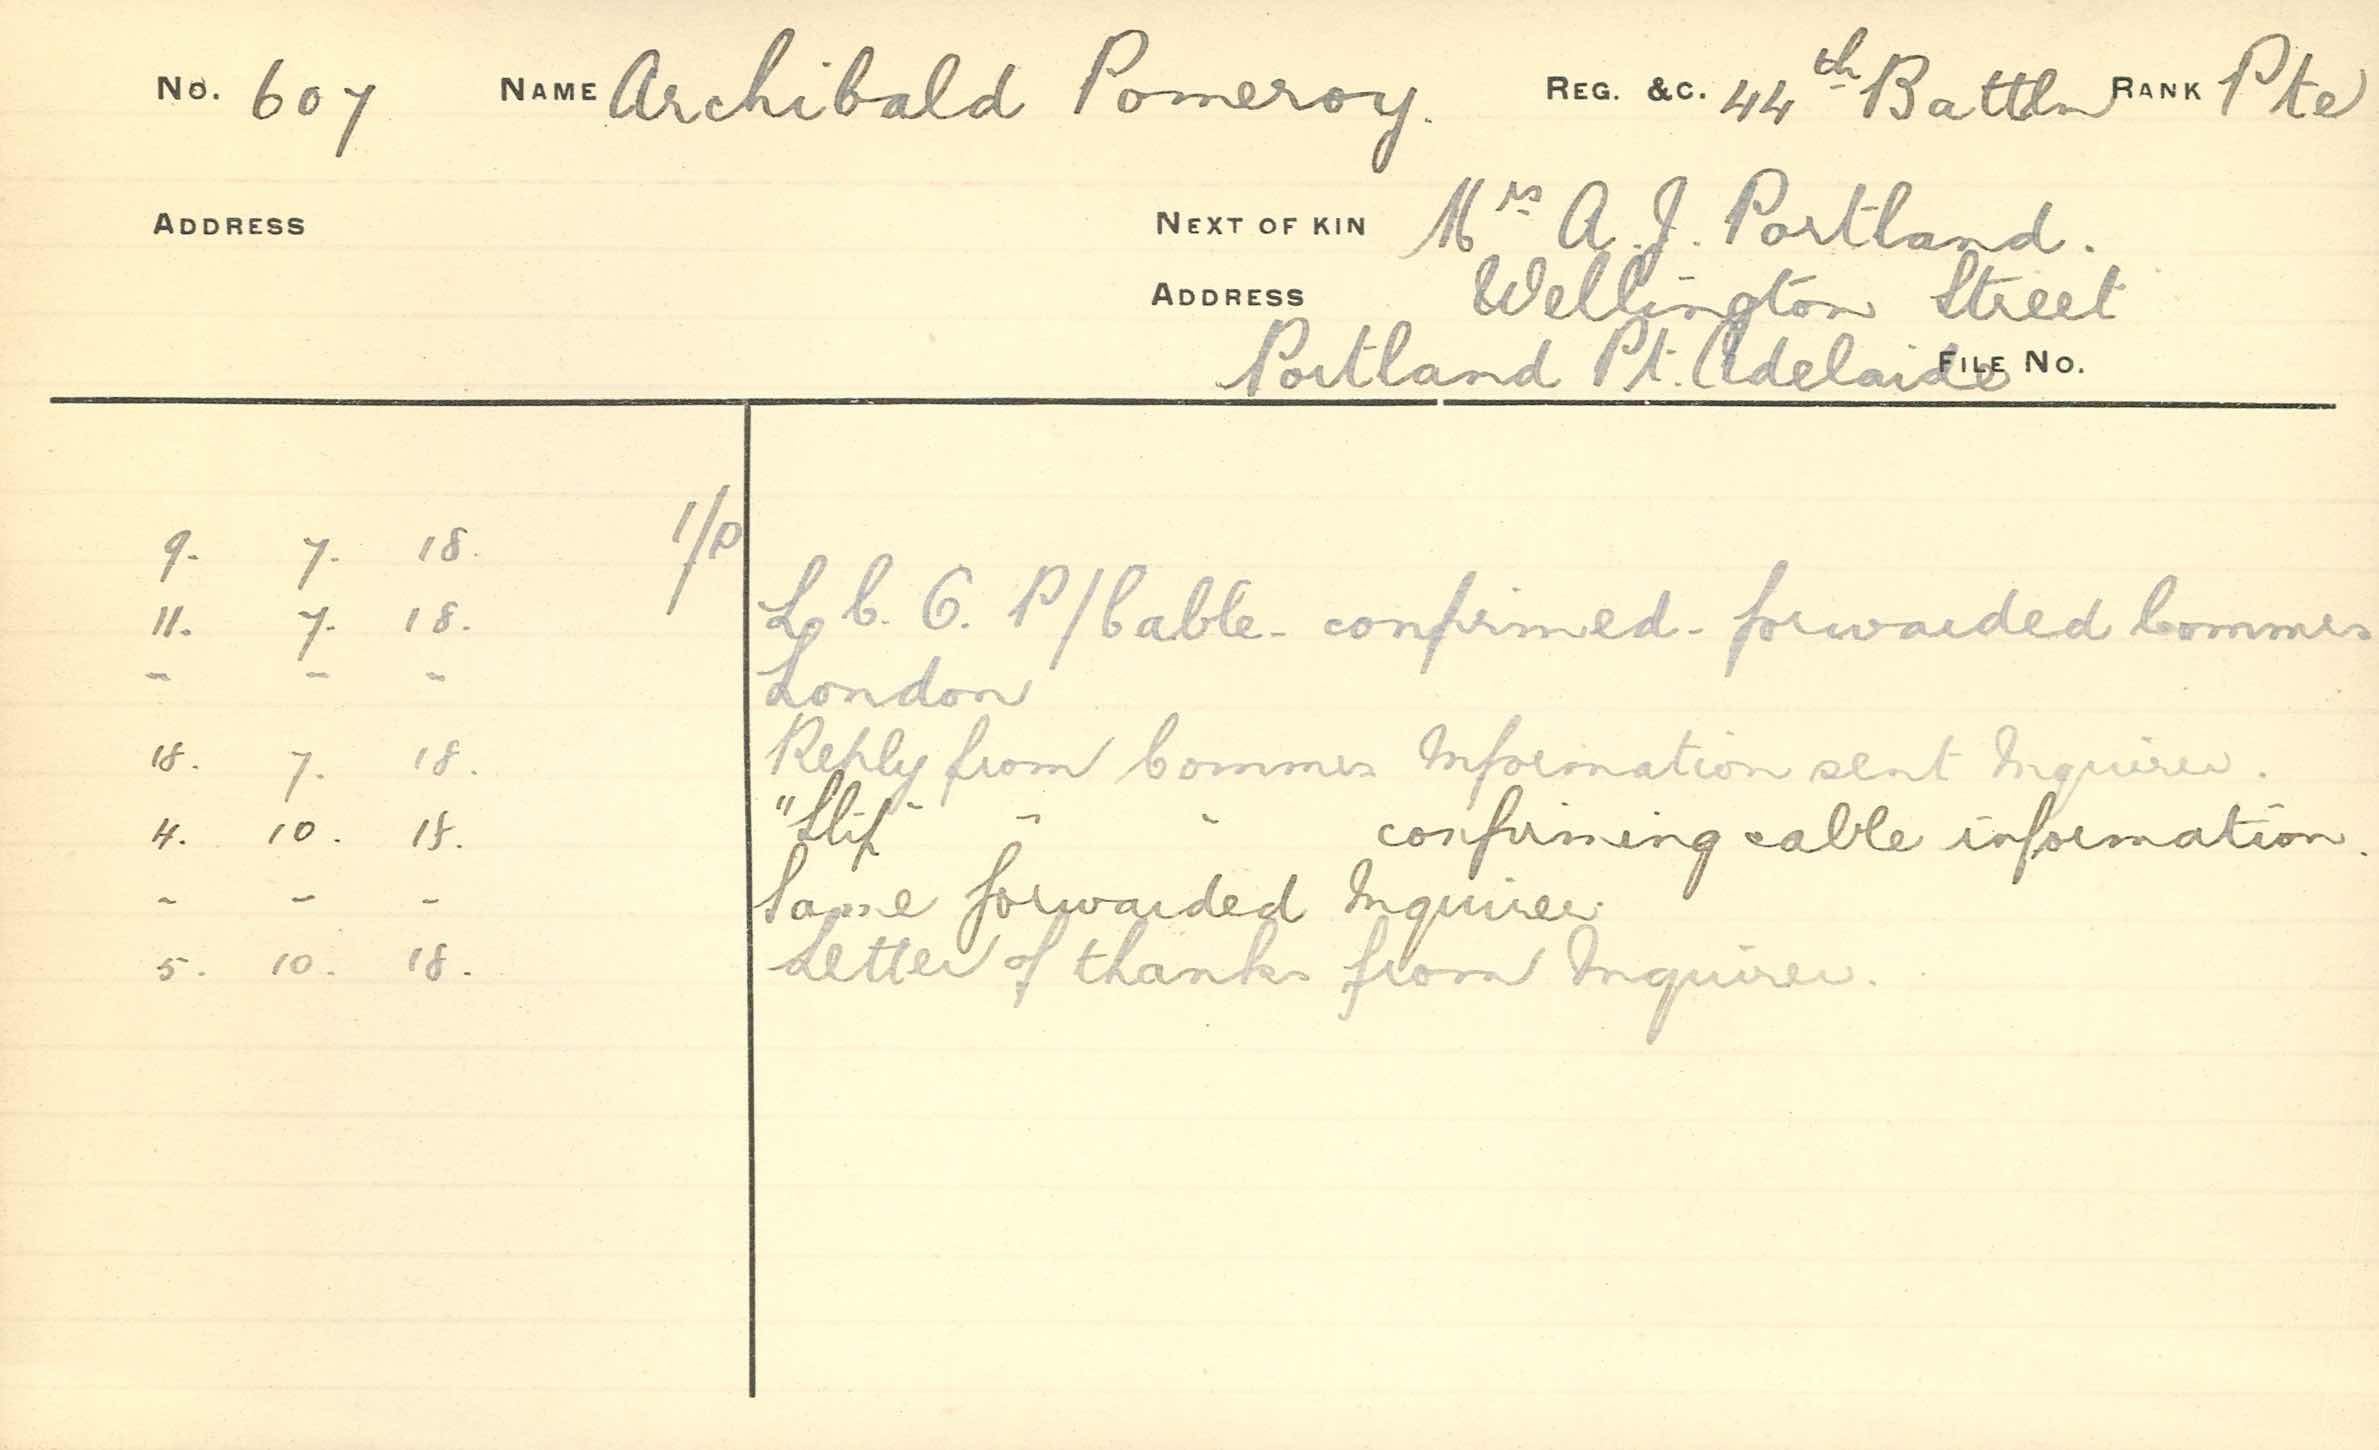 No. 607 NAME Archibald Pomeroy. REG. &C. 44th Battln RANK Pte
ADDRESS NEXT OF KIN Mrs A. J. Portland.
ADDRESS Wellington Street
Portland Pt. Adelaide FILE No.
9. 7. 18. 1/P
11. 7. 18. L. C. C. P/Cable - confirmed - forwarded Commrs
- - - London
18. 7. 18. Reply from Commrs Information sent Inquirer.
4. 10. 18. "Slip" " " confirming cable information.
- - - Same forwarded Inquirer.
5. 10. 18. Letter of thanks from Inquirer.